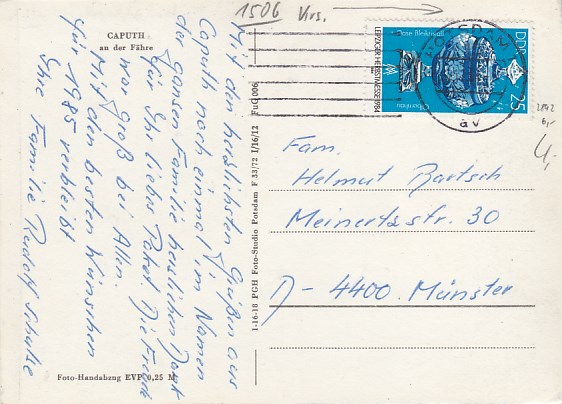 1506 Vrs.
CAPUTH
an der Fähre
Mit den herzlichsten Grüßen aus
Caputh noch einmal im Namen
der ganzen Familie herzlichen Dank
für Ihr liebes Paket. Die Freude
war groß bei Allen.
Mit den besten Wünschen
für 1985 verbleibt
Ihre Familie Rudolf Schulze
Foto-Handabzug EVP 0,25 M
1-16-18 PGH Foto-Studio Potsdam F 33/72 I/16/12 FuG 006
LEIPZIGER HERBSTMESSE 1984
DDR
25
POTSDAM
av
2892
6,-
4,-
Fam.
Helmut Bartsch
Meinertzstr. 30
D - 4400 Münster